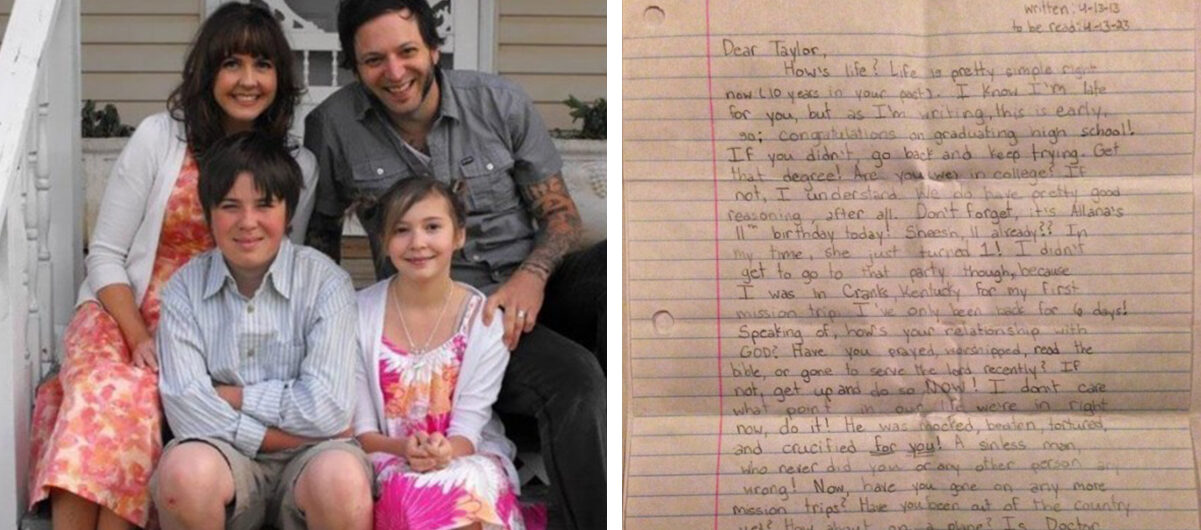 written: 4-13-13
to be read: 4-13-23
Dear Taylor,
How's life? Life is pretty simple right
now (10 years in your past). I know I'm late
for you, but as I'm writing, this is early,
so; congratulations on graduating high school!
If you didn't go back and keep trying. Get
that degree! Are you (we) in college? If
not, I understand. We do have pretty good
reasoning, after all. Don't forget, it's Allana's
11th birthday today! Sheesh, 11 already?? In
my time, she just turned 1! I didn't
get to go to that party though, because
I was in Cranks, Kentucky for my first
mission trip. I've only been back for 6 days!
Speaking of, how's your relationship with
GOD? Have you prayed, worshipped, read the
bible, or gone to serve the lord recently? If
not, get up and do so NOW! I don't care
what point in our life we're in right
now, do it! He was mocked, beaten, tortured,
and crucified for you! A sinless man,
who never did you or any other person any
wrong! Now, have you gone on any more
mission trips? Have you been out of the country
yet? How about on a plane? Is Doctor